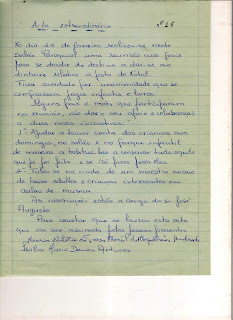 Acta extraordinária nº 28
No dia 25 de Janeiro realizou-se neste
Salão Paroquial uma reunião aos pais
para se decidir do destino a dar-se ao
dinheiro relativo à festa do Natal.
Ficou acordado por unanimidade que se
comprassem jogos infantis e livros.
Alguns pais e mães que participaram
na reunião, vão dar o seu apoio e colaboração
a duas novas iniciativas:
1ª- Ajudar a tomar conta das crianças aos
domingos, no salão e no parque infantil
de maneira a habituá-las a conservar tudo aquilo
que já foi feito e se irá fazer para elas.
2ª- Falou-se na vinda de um maestro no caso
de haver adultos e crianças interessadas em
aulas de música.
As inscrições estão a cargo do Sr. José
Augusto.
Para constar que se lavrou esta acta
que vai ser assinada pelos pais presentes
Maria
Maria Antunes